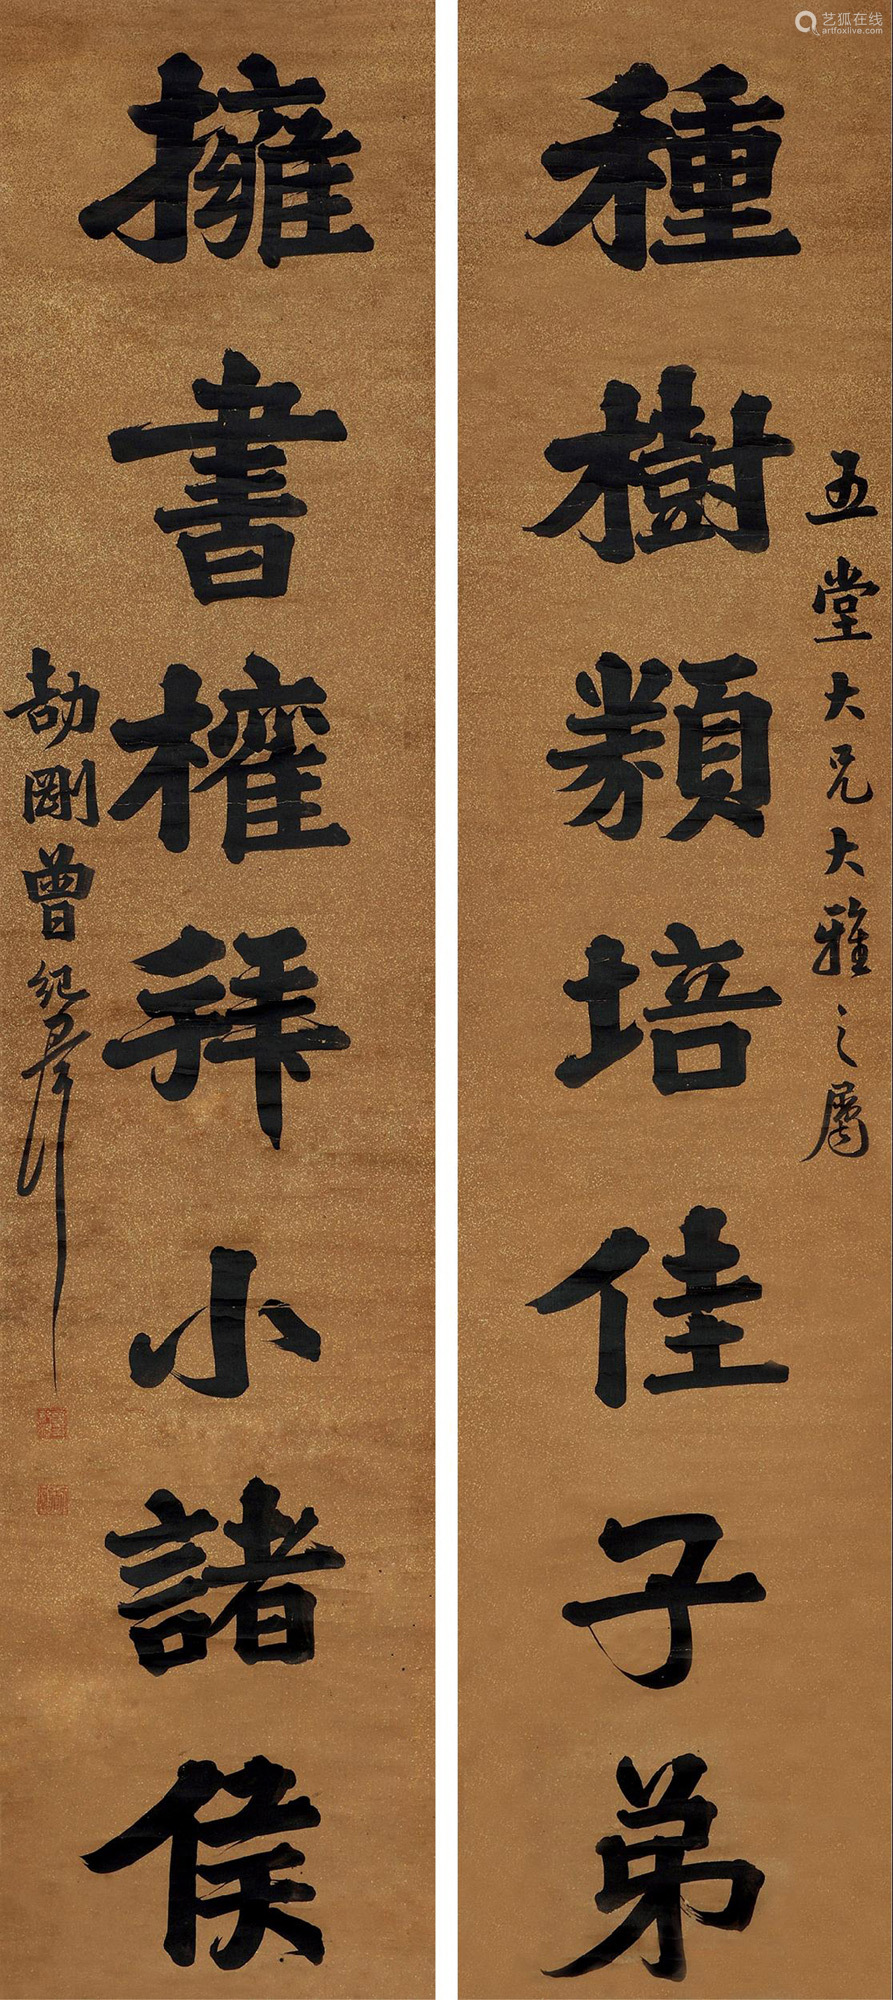 五堂大兄大雅之屬
種樹類培佳子弟
擁書權拜小諸侯
劼剛曾紀澤
艺狐在线
artfoxlive.com